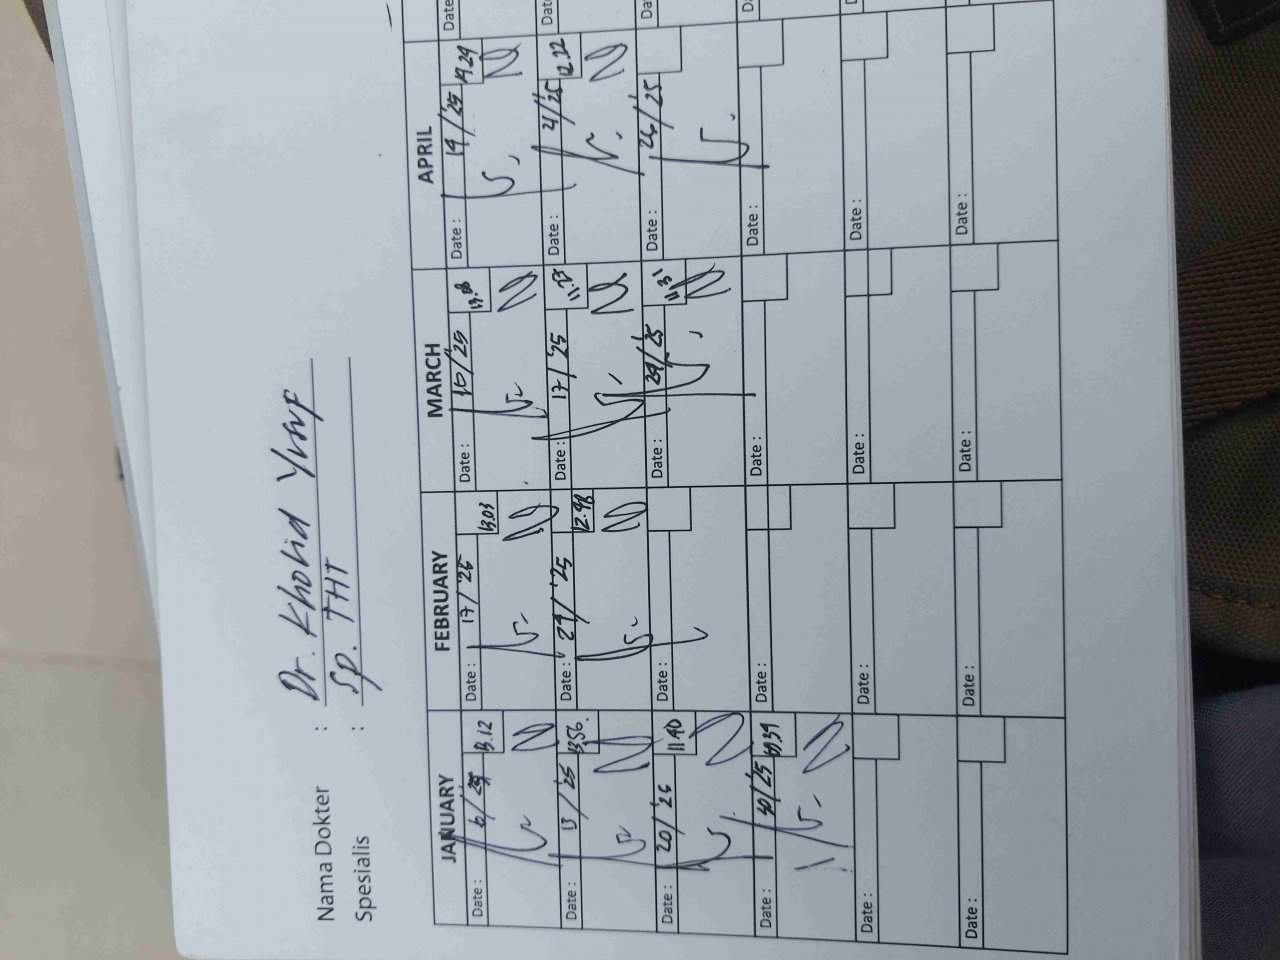 Nama Dokter : Dr. Kholid Yusuf
Spesialis : Sp. THT
JANUARY FEBRUARY MARCH APRIL
Date : 6/'25 13.12 Date : 17/'25 13.03 Date : 10/'25 13.08 Date : 14/'25
Date : 13/'25 13.56 Date : 24/'25 12.48 Date : 17/'25 Date : 21/'25 12.22
Date : 20/'25 11.40 Date : Date : 24/'25 11.31 Date : 26/'25
Date : 30/'25 Date : Date : Date :
Date : Date : Date : Date :
Date : Date : Date : Date :